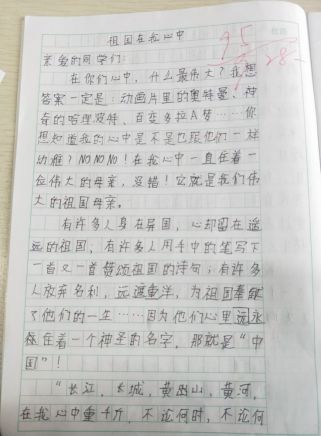 祖国在我心中
95
28
亲爱的同学们:
在你们心中,什么最伟大?我想
答案一定是:动画片里的奥特曼、神
奇的哈理波特、百变多拉A梦……你
想知道我的心中是不是也跟他们一样
幼稚?NONONO!在我心中一直住着一
位伟大的母亲,没错!它就是我们伟
大的祖国母亲。
有许多人身在异国,心却留在遥
远的祖国,有许多人用手中的笔写下
一首又一首赞颂祖国的诗句;有许多
人放弃名利,远渡重洋,为祖国奉献
了他们的一生……因为他们心里永
住着一个神圣的名字,那就是“中
国”!
“长江,长城,黄山,黄河,
在我心中重千斤,不论何时,不论何